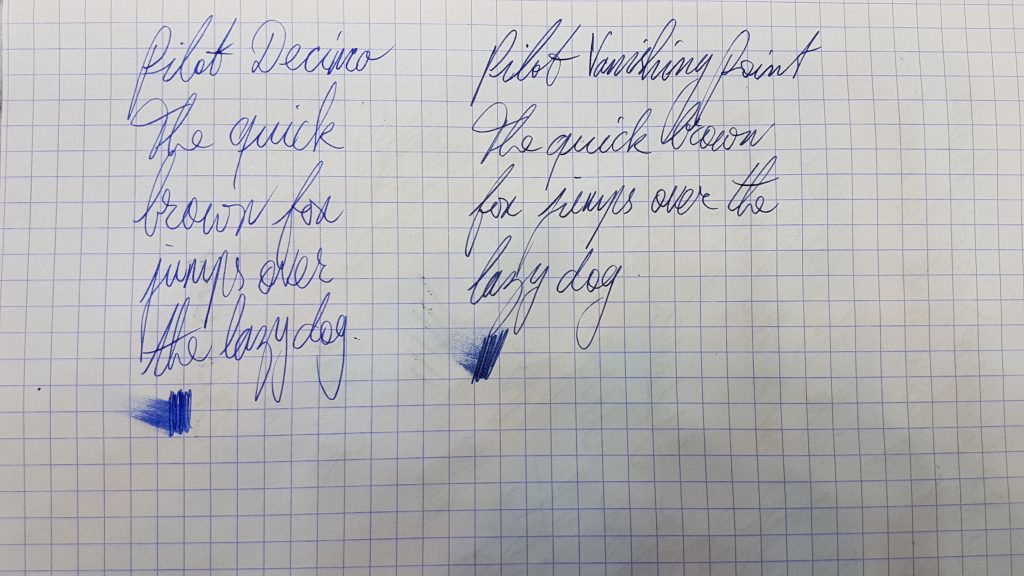 Pilot Decimo
The quick
brown fox
jumps over
the lazy dog.
Pilot Vanishing Point
The quick brown
fox jumps over the
lazy dog.